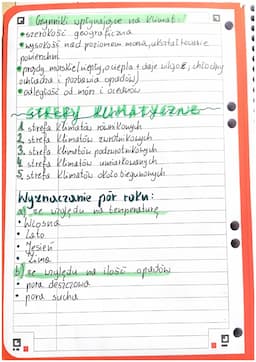 Czynniki wpływające na klimat:
• szerokość geograficzna
• wysokość nad poziomem morza, ukształtowanie
powierzchni
• prądy morskie (ciepły, ociepla i daje wilgoć, chłodny
ochładza i pozbawia opadów)
• odległość od mórz i oceanów
STREFY KLIMATYCZNE
1. strefa klimatów równikowych
2. strefa klimatów zwrotnikowych
3. strefa klimatów podzwrotnikowych
4. strefa klimatów umiarkowanych
5. strefa klimatów okołobiegunowych
Wyznaczanie pór roku:
a) ze względu na temperaturę
• Wiosna
• Lato
• Jesień
• Zima
b) ze względu na ilość opadów
• pora deszczowa
• pora sucha